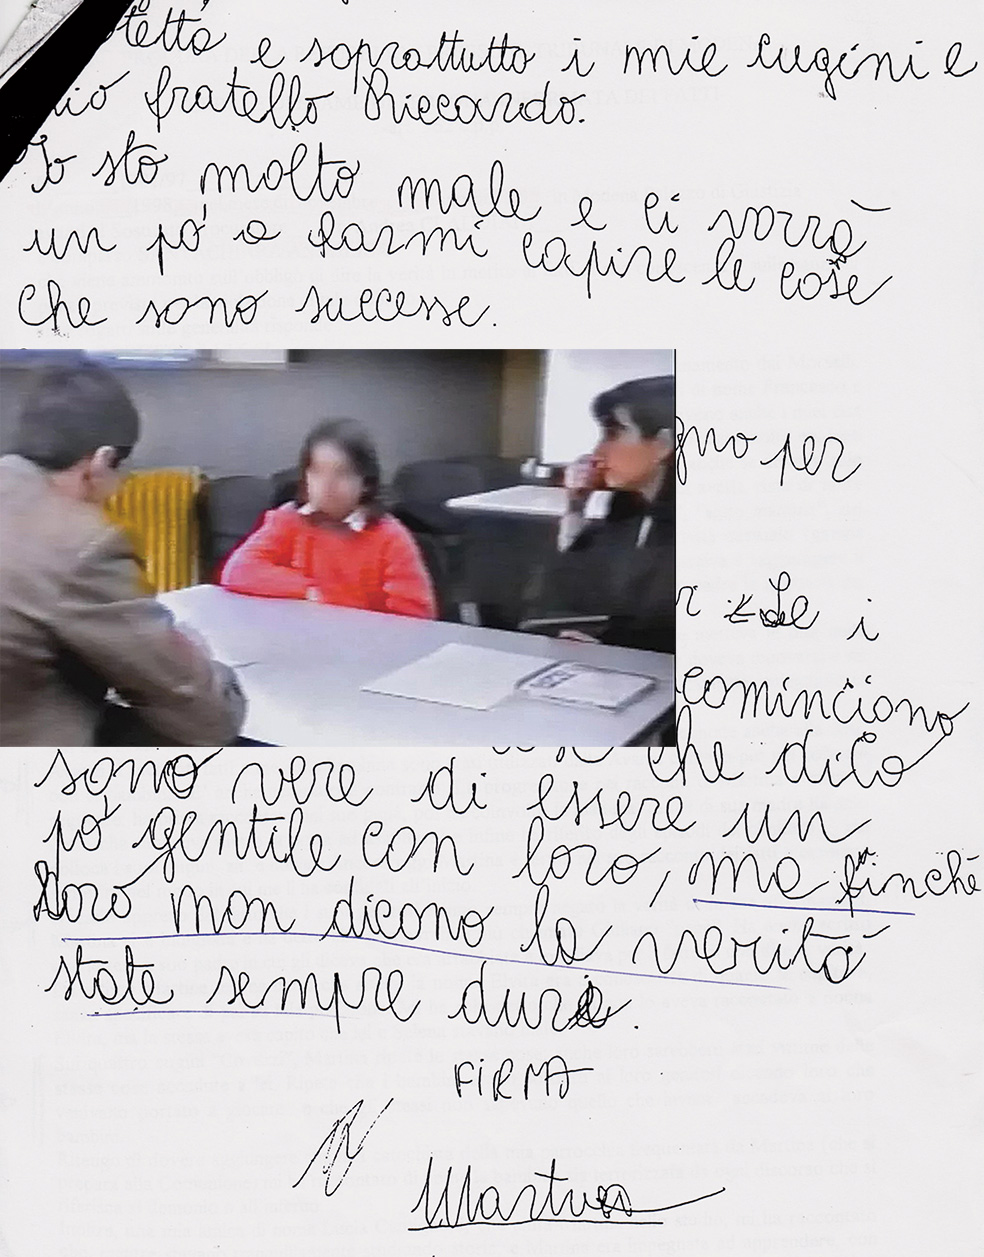 e soprattutto i mie cugini e
mio fratello Riccardo.
Io sto molto male e ci vorrà
un pó a farmi capire le cose
che sono successe.
per
Le i
cominciono
sono vere di che dico
pó gentile con essere un
loro, ma finchè
loro non dicono la verità
state sempre duri.
FIRMA